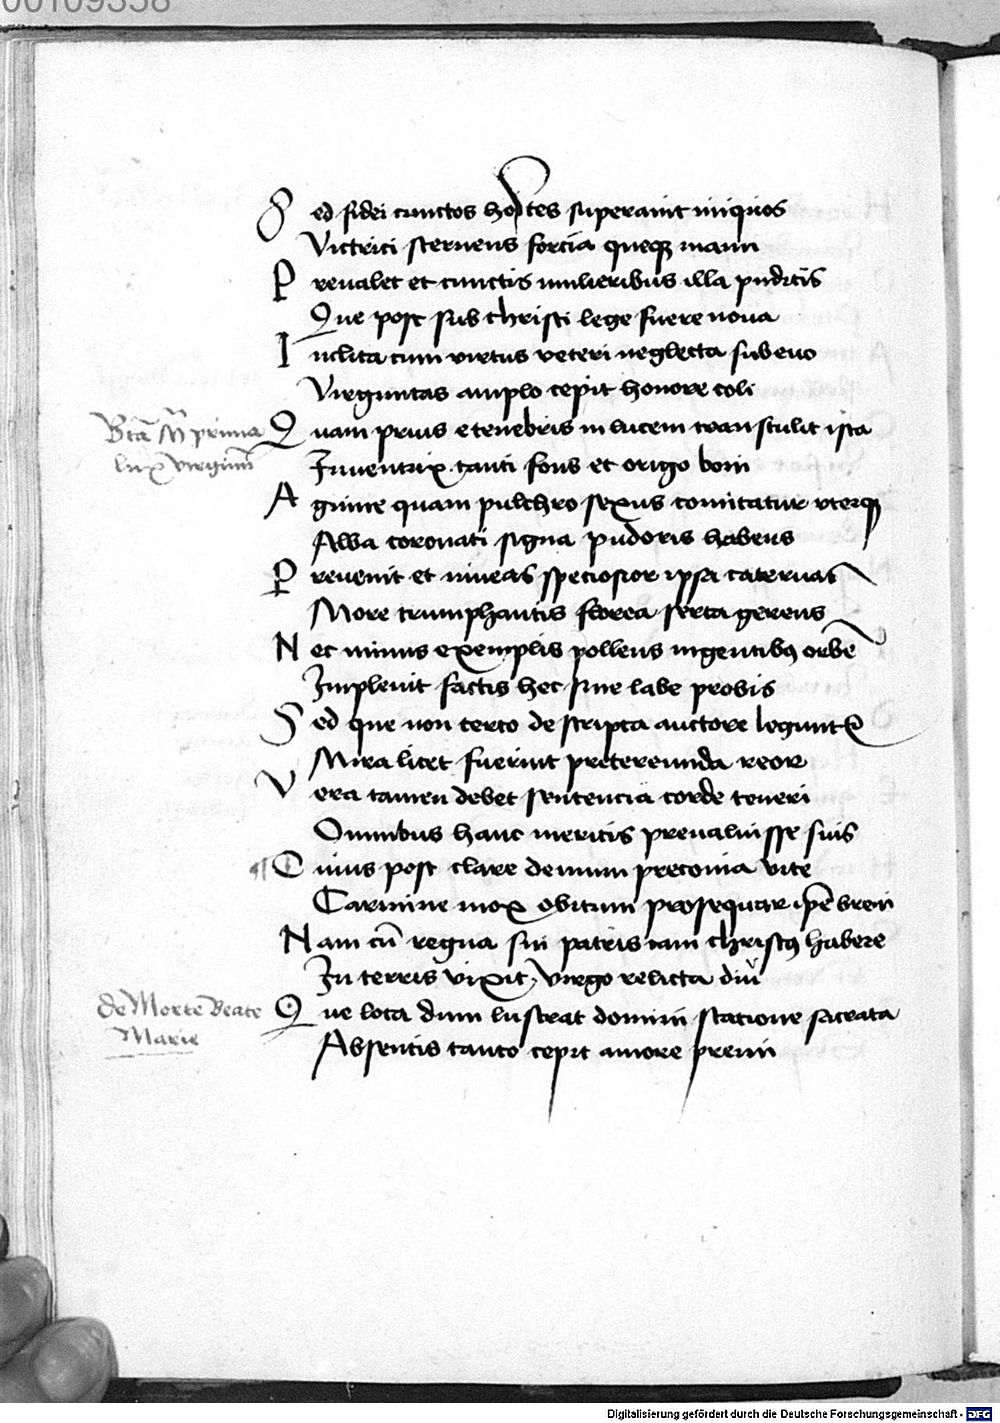 00109358
Sed fidei cunctos hostes superauit iniquos
Victrici sternens forcia queq₃ manu
Preualet et cunctis mulieribus illa pudicis
Que post sub christi lege fuere noua
Inclita cum virtus veteri neglecta sub euo
Virginitas amplo cepit honore coli
Btā Mª prima
lux virginū
Quam prius e tenebris in lucem transtulit ista
Inuentrix tanti fons et origo boni
Agmine quam pulchro sexus comitatur vterq₃
Alba coronati signa pudoris habens
Preuenit et niueas speciosior ipsa cateruas
More triumphantis florea serta gerens
Nec minus exemplis pollens ingentibꝯ orbē
Impleuit factis hec sine labe probis
Sed que non certo descripta auctore leguntr̄
Mira licet fuerint pretereunda reor
Vera tamen debet sentencia corde teneri
Omnibus hanc meritis preualuisse suis
Cuius post clare demum preconia vite
Carmine mox obitum prosequar ip̄e breui
Nam cū regna sui patris iam christꝯ habere
In terris vixit virgo relicta diu
de Morte Beate
Marie
Que loca dum lustrat domini statione sacrata
Absentis tanto cepit amore premi
Digitalisierung gefördert durch die Deutsche Forschungsgemeinschaft - DFG